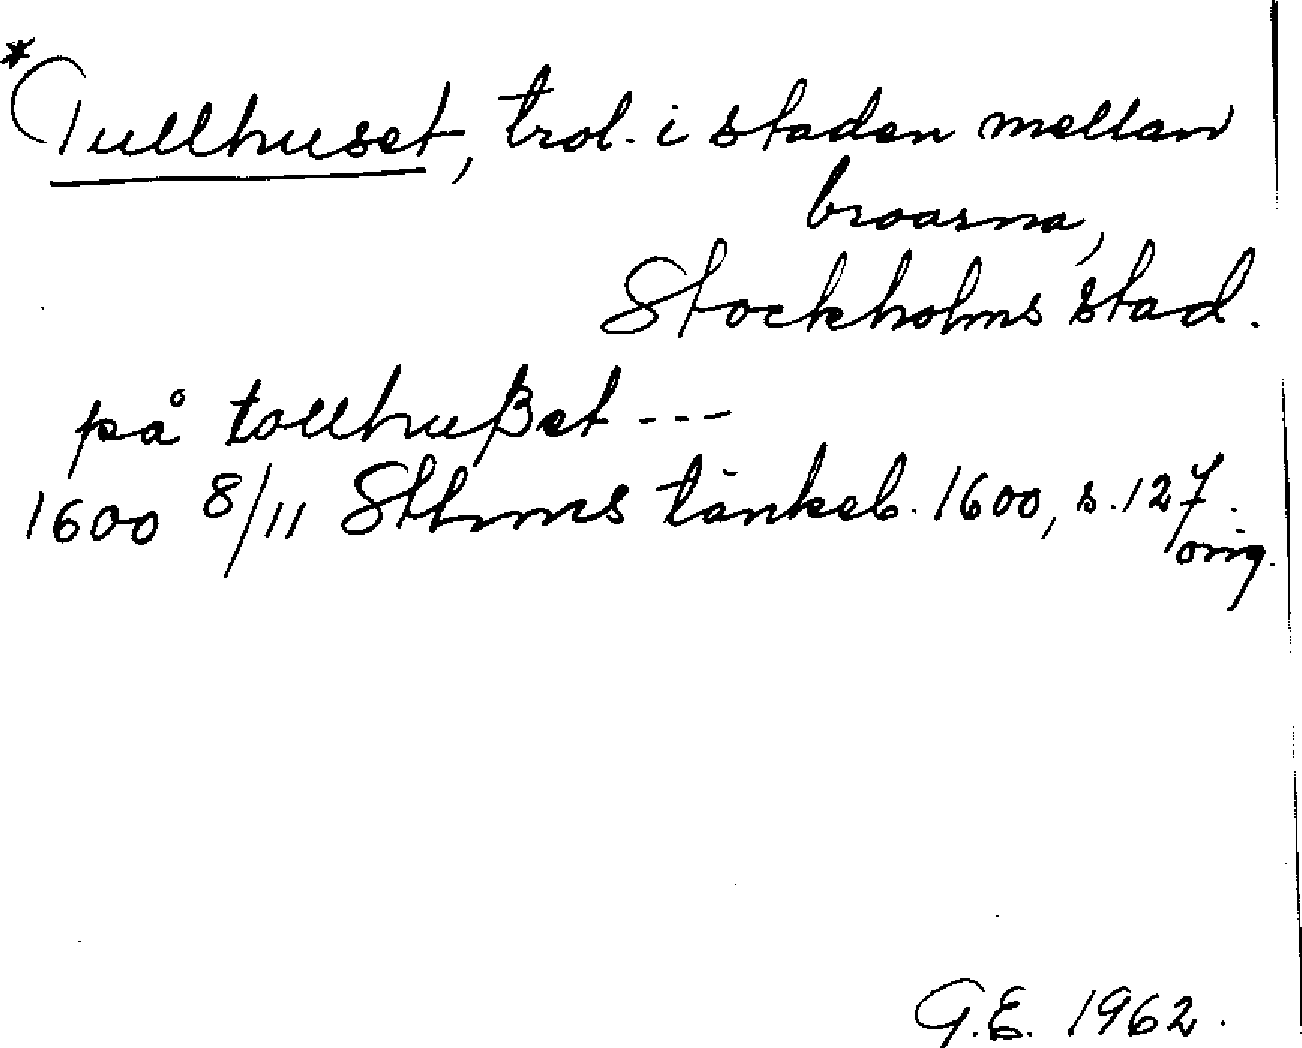 *Tullhuset, trol. i staden mellan
broarna,
Stockholms stad.
på tollhußet ---
1600 8/11 Sthms tänkeb. 1600, s. 127.
orig.
G.E. 1962.